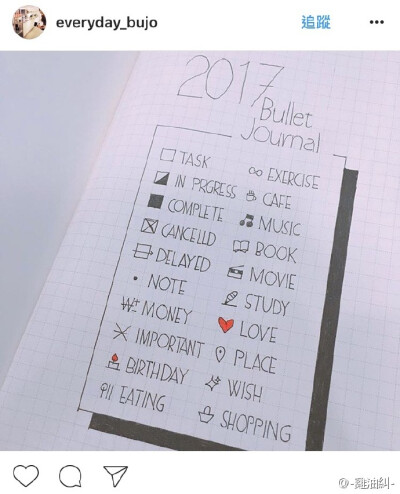 everyday_bujo
追蹤
2017
Bullet
Journal
TASK
IN PRGRESS
COMPLETE
CANCELLD
DELAYED
NOTE
MONEY
IMPORTANT
BIRTHDAY
EATING
EXERCISE
CAFE
MUSIC
BOOK
MOVIE
STUDY
LOVE
PLACE
WISH
SHOPPING
@-雞油糾-